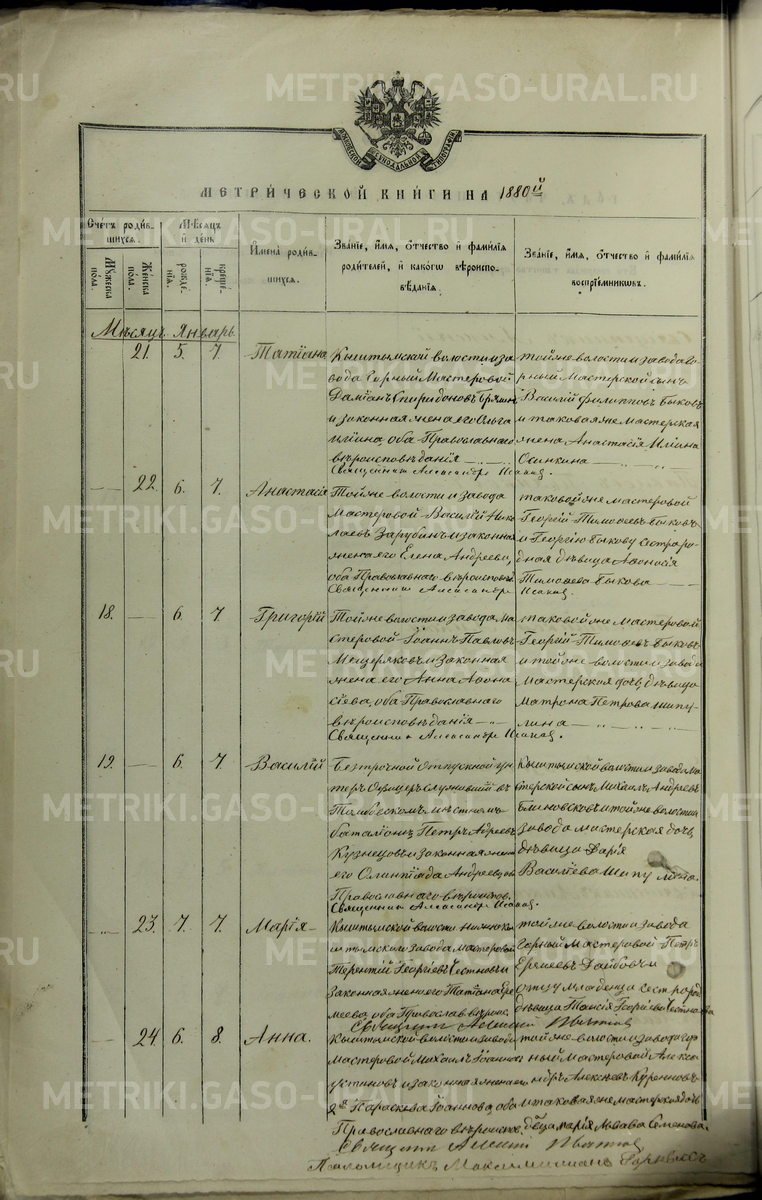 METRIKI.GASO-URAL.RU
МЕТРИ́ЧЕСКОЙ КНИ́ГИ НА 1880й
Сче́тъ роди́в-
шихся.
Мѣсяцъ
и҆ день
Му́жеска по́ла.
Же́нска по́ла.
рожде́нїѧ.
креще́нїѧ.
И҆мена̀ роди́в-
шихся.
Зва́нїе, и҆́мѧ, ѻ҆́тчество и҆ фами́лїѧ
роди́телей, и҆ како́гѡ вѣроиспо-
вѣ́данїѧ.
Зва́нїе, и҆́мѧ, ѻ҆́тчество и҆ фами́лїѧ
воспрїе́мникѡвъ.
Мѣсяцъ Январь.
21. 5. 7. Татіана
Кыштымской волости и за
вода Горный Мастеровой
Даміанъ Спиридоновъ
и законная жена его Ольга
Ильина, оба Православнаго
вѣроисповѣданія
Священникъ Александръ
той же волости и завода Го-
рный Мастерской сынъ
Василій Филипповъ Быковъ
и таковая же мастерская
жена Анастасія Ильина
Осинкина
22. 6. 7. Анастасія
Той же волости и завода
Мастеровой Василій Нико
лаевъ Зарубинъ и законная
жена его Елена Андреева,
оба Православнаго вѣроисповѣд
Священникъ Александръ
таковой же мастеровой
Георгій Тимофеевъ Быковъ
и Георгію Быкову сестра ро-
дная дѣвица Афонасія
Тимофеева Быкова
18. 6. 7 Григорій
Той же волости и завода ма
стеровой Іоаннъ Павловъ
Мещеряковъ и законная
жена его Анна Афона
сіева, оба Православнаго
вѣроисповѣданія
Священникъ Александръ
таковой же мастеровой
Георгій Тимофеевъ Быковъ
и той же волости и завода
Мастерская дочь дѣвица
Матрона Петрова Шипу
лина
19. 6. 7. Василій
Безсрочной Отпускной ун
теръ Офицеръ служившій въ
Тамбовскомъ мѣстномъ
баталіонѣ Петръ Андреевъ
Кузнецовъ и законная жена
его Олимпіада Андреева, оба
Православнаго вѣроиспов.
Священникъ Александръ
Кыштымской волости и завода Ма
стерской сынъ Михаилъ Андреевъ
Блиновсковъ и той же волости и
завода мастерская дочь,
дѣвица Дарія
Васильева Шипулина.
23. 7. 7. Марія
Кыштымской волости Нижнекы
штымскаго завода мастеровой
Терентій Георгіевъ Честновъ и
законная жена его Татіана Ере
меева, оба Православ. вѣроис.
той же волости и завода
Горный Мастеровой Петръ
Еремеевъ Дайбовъ и
отцу младенца сестра род.
дѣвица Таисія Георгіева Честнова
24. 6. 8. Анна.
Кыштымской волости и завода
мастеровой Михаилъ Іоанновъ
Устиновъ и законная жена его
2я Параскева Іоаннова, оба
Православнаго вѣроиспов.
той же волости и завода гор
ный Мастеровой Алекса
ндръ Алексѣевъ Куренновъ
и таковая же мастерская дочь
дѣвица Марія Львова Семенова.
Псаломщикъ Максимиліанъ